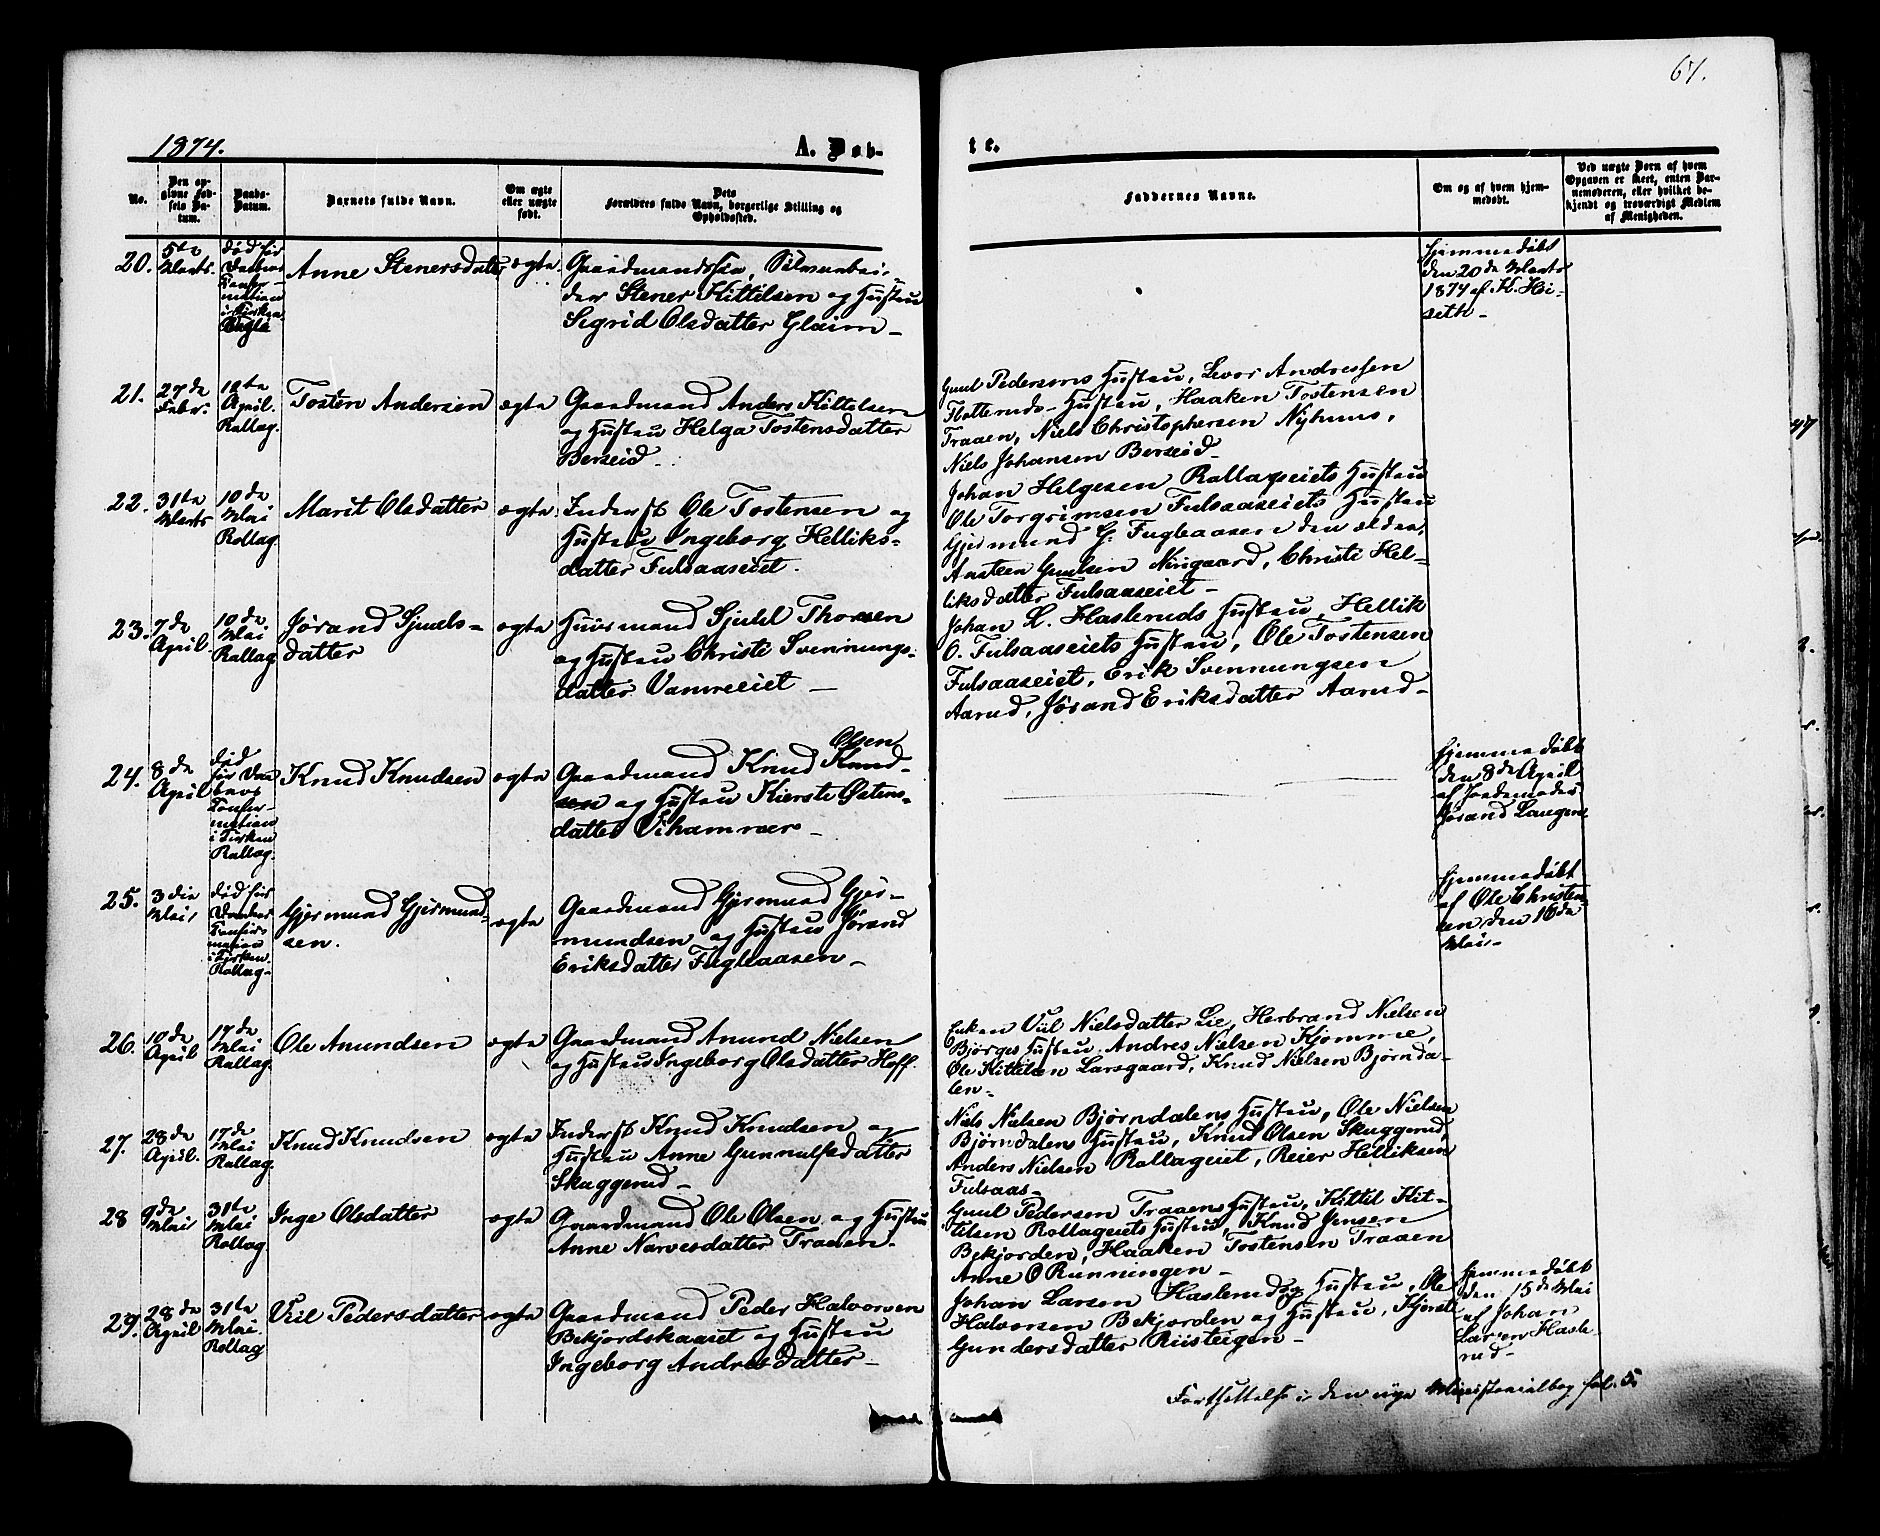 67.
1874.
A. Døb-
te.
No.
Den op-
givne Fød-
sels Da-
tum.
Daabs-
Datum.
Barnets fulde Navn.
Om ægte
eller uægte
født.
Dets
Forældres fulde Navn, borgerlige Stilling og
Opholdssted.
Faddernes Navne.
Om og af hvem hjem-
medøbt.
Ved uægte Børn af hvem
Opgaven er skeet, enten Bar-
nemoderen, eller hvilket be-
kjendt og troværdigt Medlem
af Menigheden.
20.
5te
Marts.
død før
Daabens
Confir-
mation
i Kirken
Anne Stenersdatter
ægte
Gaardmandssøn,
der Stener Kittilsen og Hustru
Sigrid Olsdatter Glaim-
Hjemmedøbt
den 20de Marts
1874 af K. Høi-
seth-
21.
27de
Febr.
10te
April.
Rollag.
Tosten Andersen
ægte
Gaardmand Anders Kittelsen
og Hustru Helga Tostensdatter
Berseid-
Gunl Pedersens Hustru, Levor Andressen
Flotteruds- Hustru, Haaken Tostensen
Traaen, Niels Christophersen Nyhuus,
Niels Johansen Berseid-
22.
31te
Marts
10de
Mai
Rollag
Marit Olsdatter
ægte
Inderst Ole Tostensen og
Hustru Ingeborg Helliks-
datter Fulsaaseiet.
Johan Helgesen Rollagseiets Hustru
Ole Torgrimsen Fulsaaseiets Hustru
Gjermund G. Fugleaasen den ældre,
Ansteen Gunlsen Nirigaard, Christi Hel-
liksdatter Fulsaaseiet-
23.
7de
April.
10de
Mai
Rollag
Jørand Sjuls-
datter
ægte
Huusmand Sjulil Thorsen
og Hustru Christi Svennungs-
datter Vanvreeiet-
Johan L. Hasleruds Hustru, Hellik
O. Fulsaaseiets Hustru, Ole Tostensen
Fulsaaseiet, Erik Svennungsen
Aarud, Jørand Eriksdatter Aarud-
24.
8de
April
død
før Daa
bens
Confir-
mation
i Kirken
Rollag.
Knud Knudsen
ægte
Olsen
Gaardmand Knud Knud-
sen og Hustru Kierste Østens-
datter Vihammer-
Hjemmedøbt
den 8de April
af Jordemoder
Jørand Laugen
25.
3die
Mai,
død før
Daabens
Confir-
mation
i Kirken.
Rollag-
Gjermund Gjermund-
sen.
ægte
Gaardmand Gjermund Gjer-
mundsen og Hustru Jørand
Eriksdatter Fugleaasen-
Hjemmedøbt
af Ole Christen-
sen den 10de
Mai-
26.
10de
April
17de
Mai
Rollag.
Ole Amundsen
ægte
Gaardmand Amund Nielsen
og Hustru Ingeborg Olsdatter Hoff.
Enken Viil Nielsdatter Lie, Herbrand Nielsen
Bjørges Hustru, Andres Nielsen Kjomme,
Ole Kittelsen Larsgaard, Knud Nielsen Bjørnda-
len-
27.
28de
April.
17de
Mai
Rollag.
Knud Knudsen
ægte
Inderst Knud Knudsen og
Hustru Anne Gunnulfsdatter
Skuggerud-
Niels Nielsen Bjørndalens Hustru, Ole Nielsen
Bjørndalens Hustru, Knud Olsen Skuggerud,
Anders Nielsen Rollagseiet, Reier Helliksen
Fulsaas-
28
9de
Mai
31te
Mai
Rollag.
Inge Olsdatter
ægte
Gaardmand Ole Olsen og Hustru
Anne Narvesdatter Traaen-
Gunl Pedersen Traaens Hustru, Kittil Kit-
tilsen Rollagseiets Hustru, Knud Jensen
Bekjorden, Haaken Tostensen Traaen
Anne O Runningen-
29.
28de
April
31te
Mai.
Rollag
Viil Pedersdatter
ægte
Gaardmand Peder Halvorsen
Bekjordskaaset og Hustru
Ingeborg Andresdatter-
Johan Larsen Haslerud og Hustru, Ole
Halvorsen Bekjorden og Hustru, Kjersti
Gundersdatter Riisteigen-
Hjemmedøbt
den 15de Mai
af Johan
Larsen Hasle-
rud-
Fortsættelse i den nye Ministerialbog fol. 5